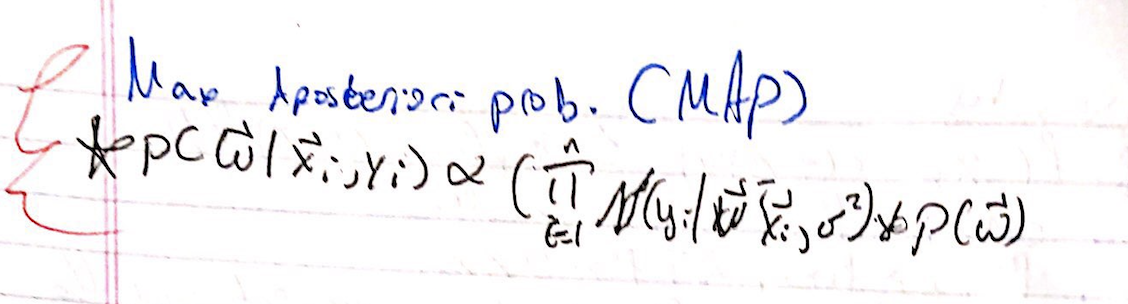 Max Aposteriori prob. (MAP)
* p(w⃗ | x⃗ᵢ, yᵢ) ∝ (∏ᵢ₌₁ⁿ N(yᵢ | w⃗ x⃗ᵢ, σ²) * p(w⃗)